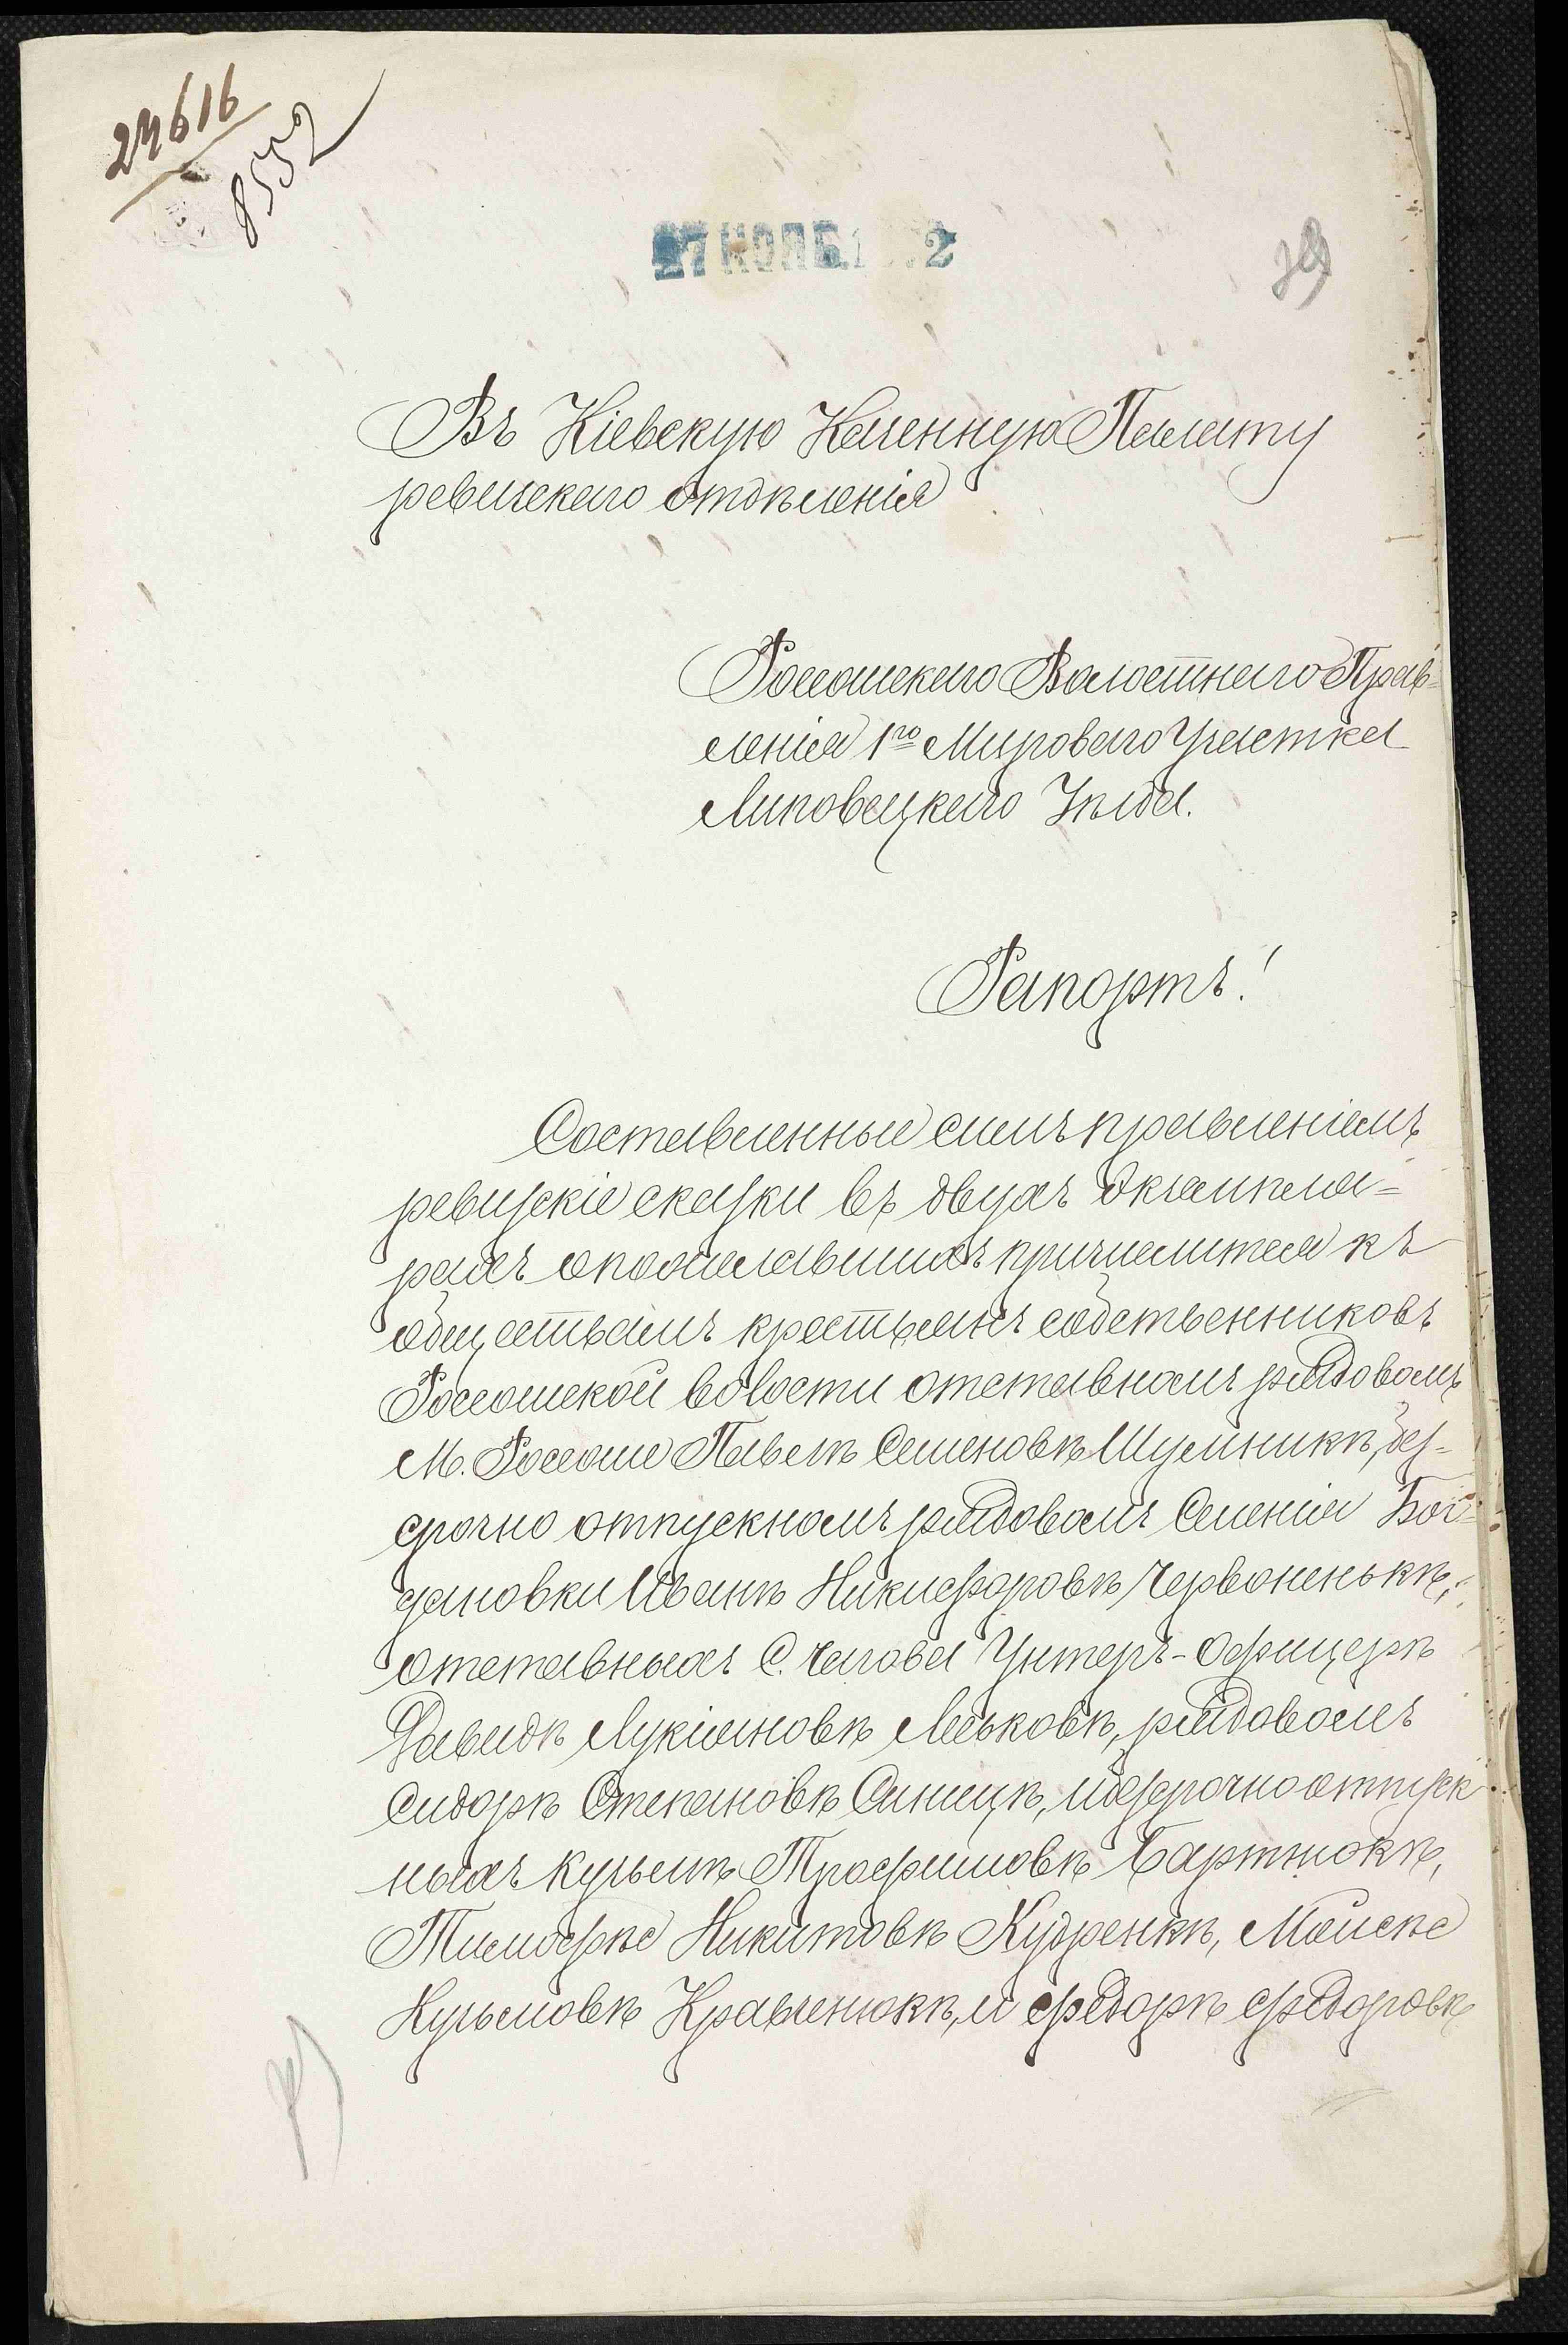 24616
8552
27 НОЯБ. 1 2
Въ Кіевскую Казенную Палату
ревизскаго отдѣленія
Россошскаго Волостнаго Прав=
ленія 1го Мироваго Участка
Липовецкаго Уѣзда.
Рапортъ!
Составленные симъ правленіемъ
ревизскіе сказки въ двухъ экземпля=
рахъ опожелавшихъ причислится къ
обществамъ крестьянъ собственниковъ
Россошской волости отставномъ рядовомъ
М. Россоше Павелѣ Семеновѣ Шулникѣ, без=
срочно отпускномъ рядовомъ Селенія Бог=
дановки Иванѣ Никифоровѣ Червоненькѣ,
отставныхъ С. Чагова Унтеръ-Офицерѣ
Давидѣ Лукіановѣ Леськовѣ, рядовомъ
Сидорѣ Степановѣ Синицѣ, и безсрочно отпуск
ныхъ Кузьмѣ Трофимовѣ Бартнюкѣ,
Тимофѣе Никитовѣ Кудренкѣ, Мойсѣе
Кузьмовѣ Кравченюкѣ, и Федорѣ Федоровѣ